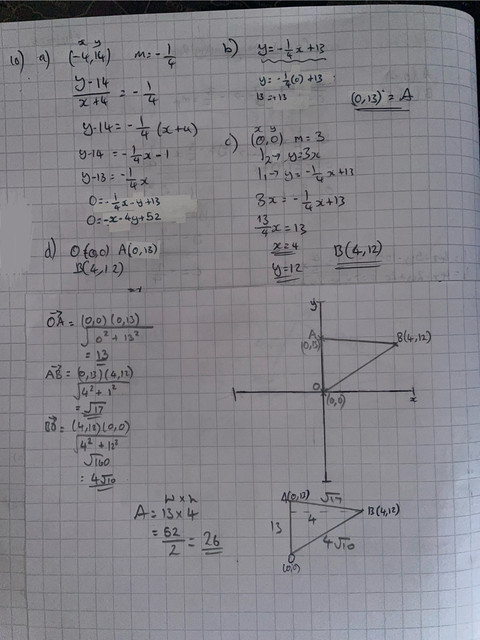 10) a) x y
(-4,14) m=-1/4
y-14/x+4 = -1/4
y-14=-1/4(x+4)
y-14=-1/4x-1
y-13=-1/4x
0=-1/4x-y+13
0=-x-4y+52
b) y=-1/4x+13
y=-1/4(0)+13
13=+13
(0,13)=A
c) x y
(0,0) m=3
l2→ y=3x
l1→ y=-1/4x+13
3x=-1/4x+13
13/4x=13
x=4
y=12
B(4,12)
d) O(0,0) A(0,13)
B(4,12)
OA = (0,0)(0,13)
√0²+13²
= 13
AB = (0,13)(4,12)
√4²+1²
= √17
(4,12)(0,0)
√4²+12²
√160
= 4√10
y
A
(0,13)
B(4,12)
O
(0,0)
x
w×h
A = 13×4
= 52/2 = 26
√17
B(4,12)
13
4
4√10
O
(0,0)